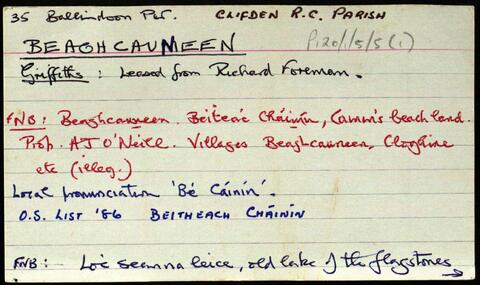 35 Ballindoon Par. CLIFDEN R.C. PARISH
P120/1/5/5(i)
BEAGHCAUNEEN
Griffiths : Leased from Richard Foreman.
FNB : Beaghcauneen. Beiteac Cháinín, Cannin's beach land.
Prop. AJ O'Neill. Villages Beaghcauneen, Cloghine
etc (illeg.)
Local pronunciation 'Bé Cáinín'.
O.S. LIST '86 BEITHEACH CHÁINÍN
FNB : Loc seanna leice, old lake of the flagstones →